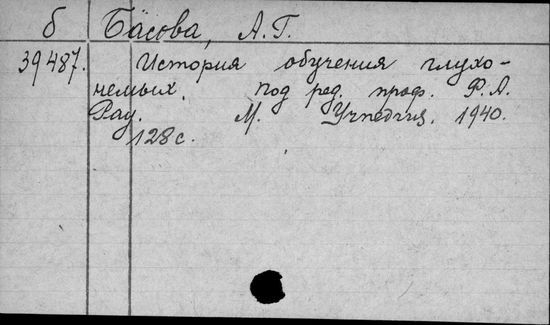 б Басова, А.Г.
39487. История обучения глухо-
немых. под ред. проф. Ф.А.
Рау. М. Учпедгиз. 1940.
128с.